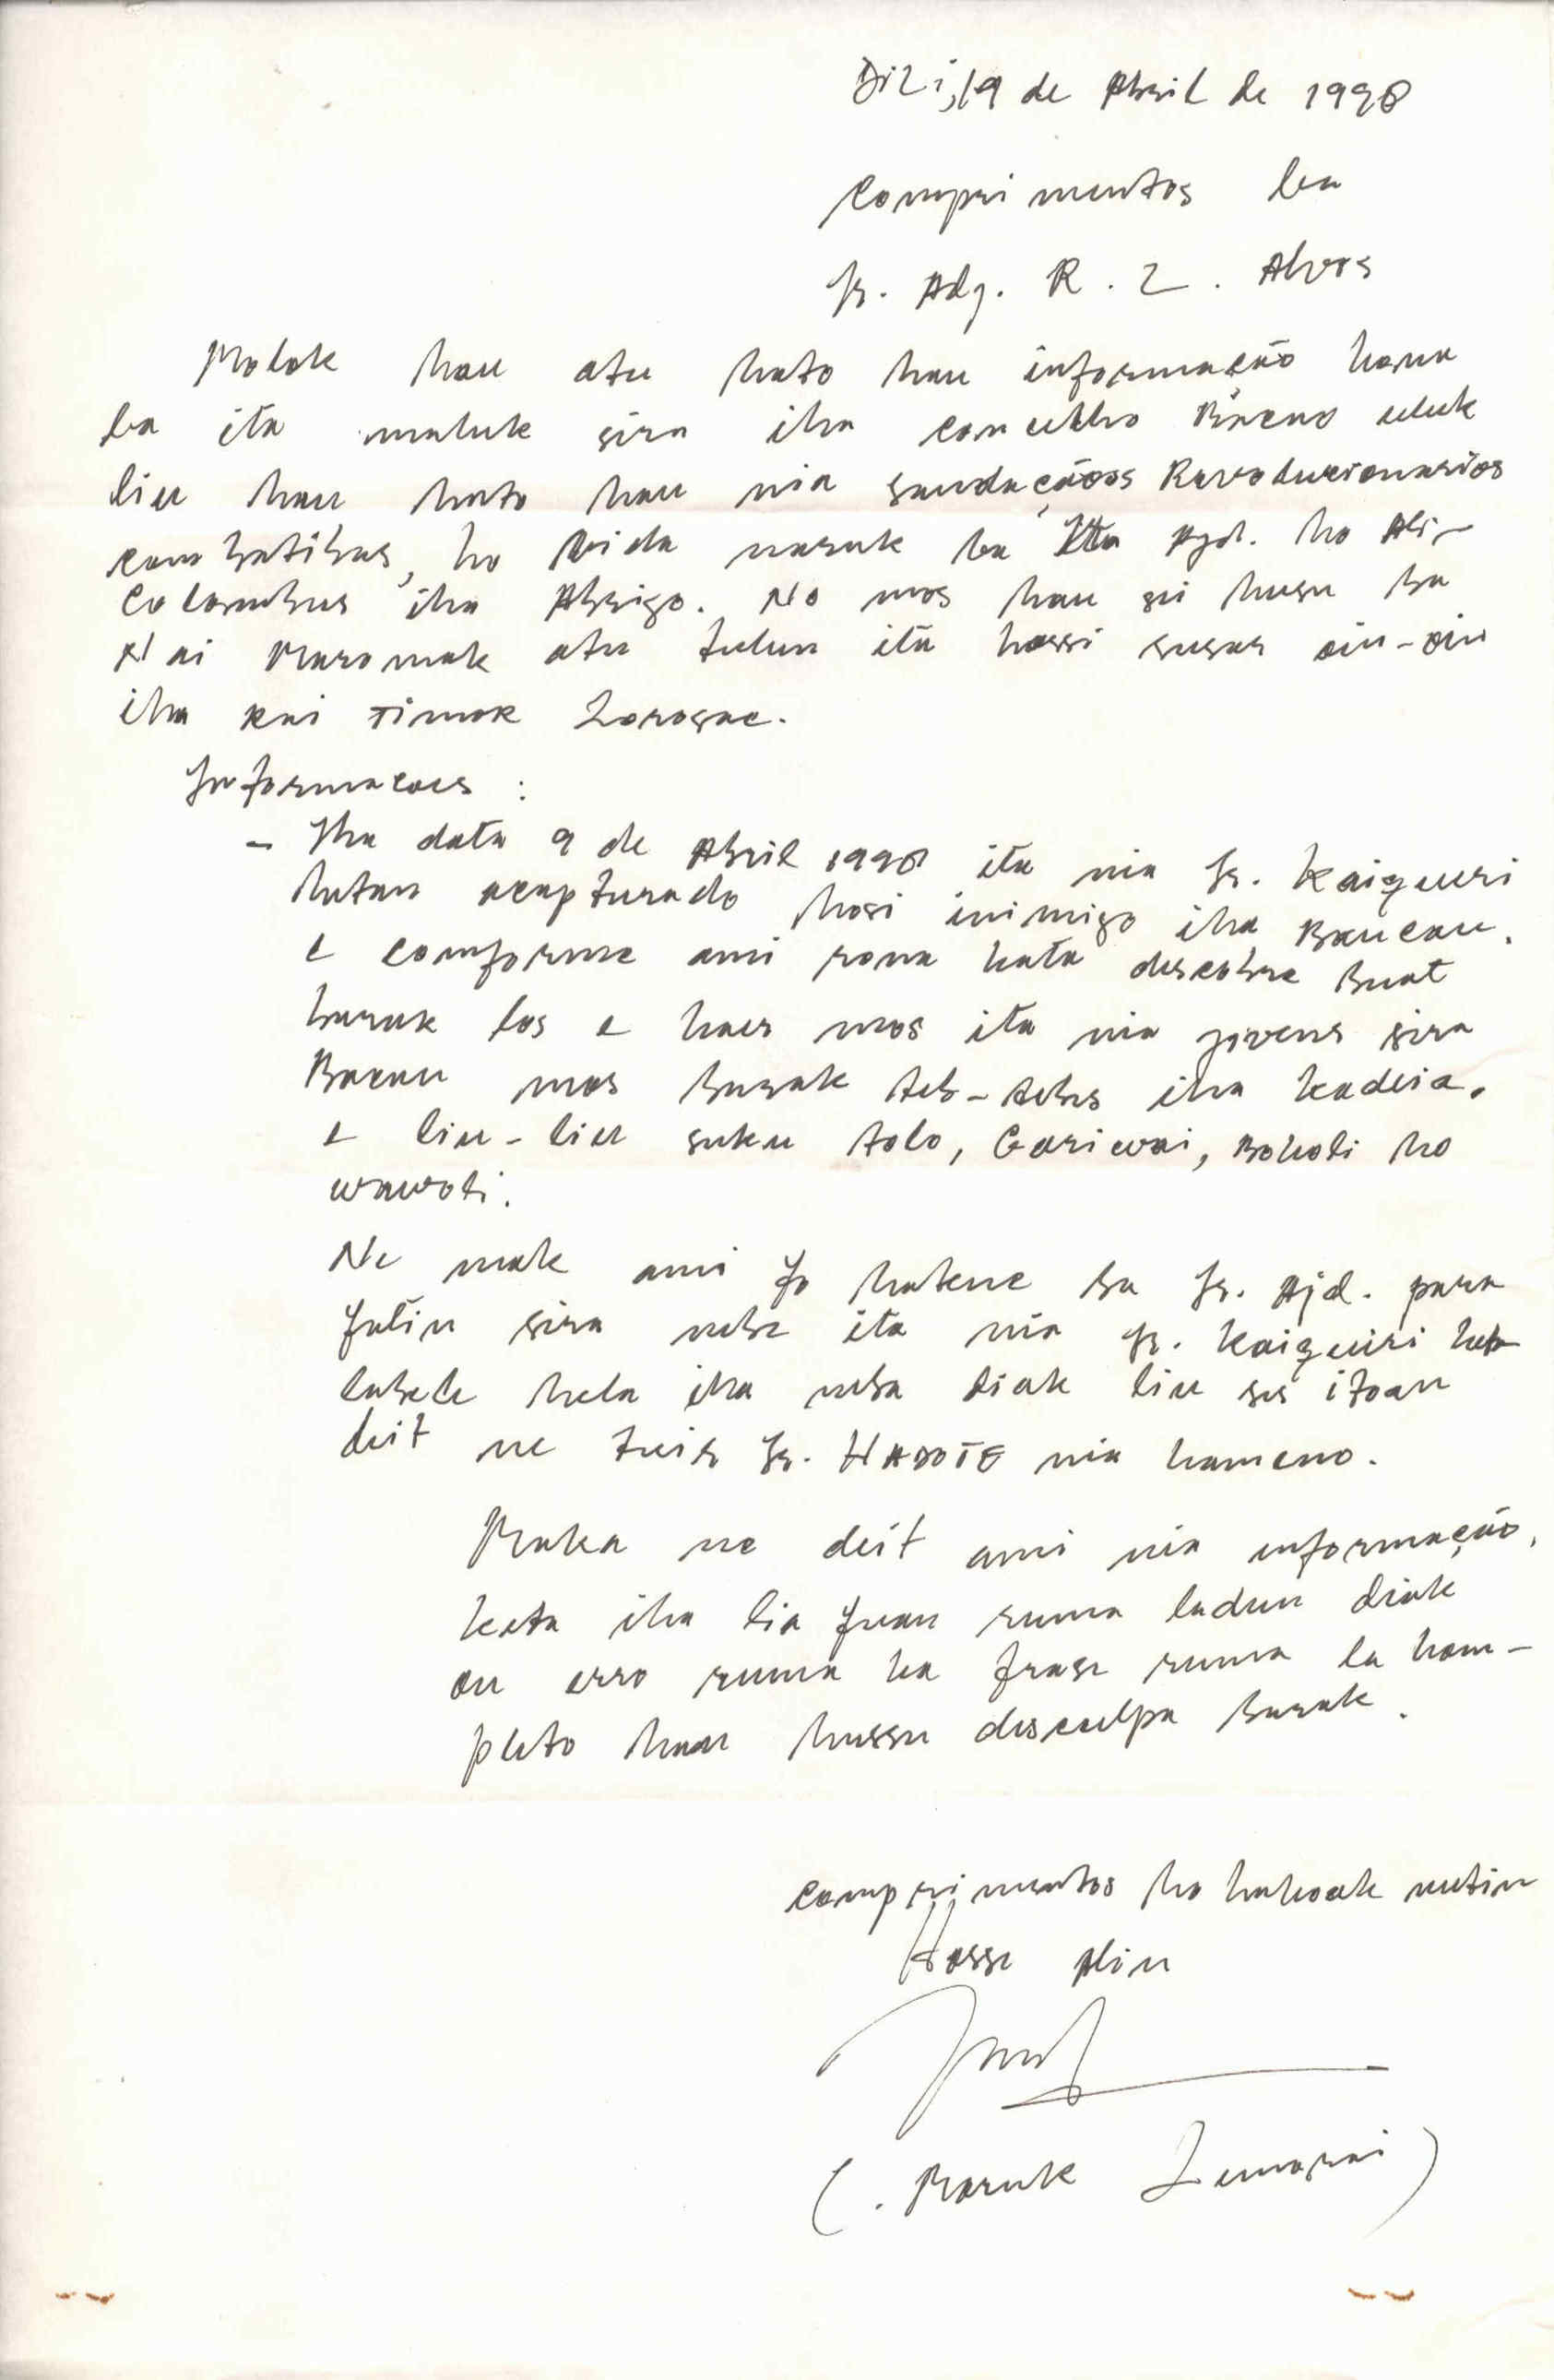 Dili, 19 de Abril de 1998
Comprimentos ba
Sr. Adj. R. L. Alves
Molok hau atu hato hau informação hona
ba ita maluk sira iha concelho Bacau uluk
liu hau hato hau nia saudaçãoes Revolucionarios
combatibas, ho bida naruk ba Itta Ajd. ho Ali-
Colombus iha Abrigo. No mos hau sei husu ba
Nai Maromak atu tulun ita hossi susar oin-oin
iha rai Timor Lorosae.
Informacoes :
- Iha data 9 de Abril 1998 ita nia Sr. Kaiqueri
hetan acapturado hosi inimigo iha Baucau.
e comforme ami rona kata descobre Buat
barak los e haer mos ita nia jovens sira
Bacau mos barak teb-tebes iha kadeia.
e liu-liu suku tolo, Gariwai, Boholi ho
wawoli.
Ne mak ami fo hatene ba Sr. Ajd. para
fatin sira nebe ita nia Sr. Kaiquiri
labele hela iha neba diak liu ses itoan
deit ne tuir Sr. HADOTE nia hameno.
Maka ne deit ami nia informação,
keta iha lia fuan ruma ladun diak
ou erro ruma ka frase ruma la kom-
pleto hau hussu desculpa barak.
comprimentos ho hakoak metin
Hosse Alin
(. Maruk Lemorai)